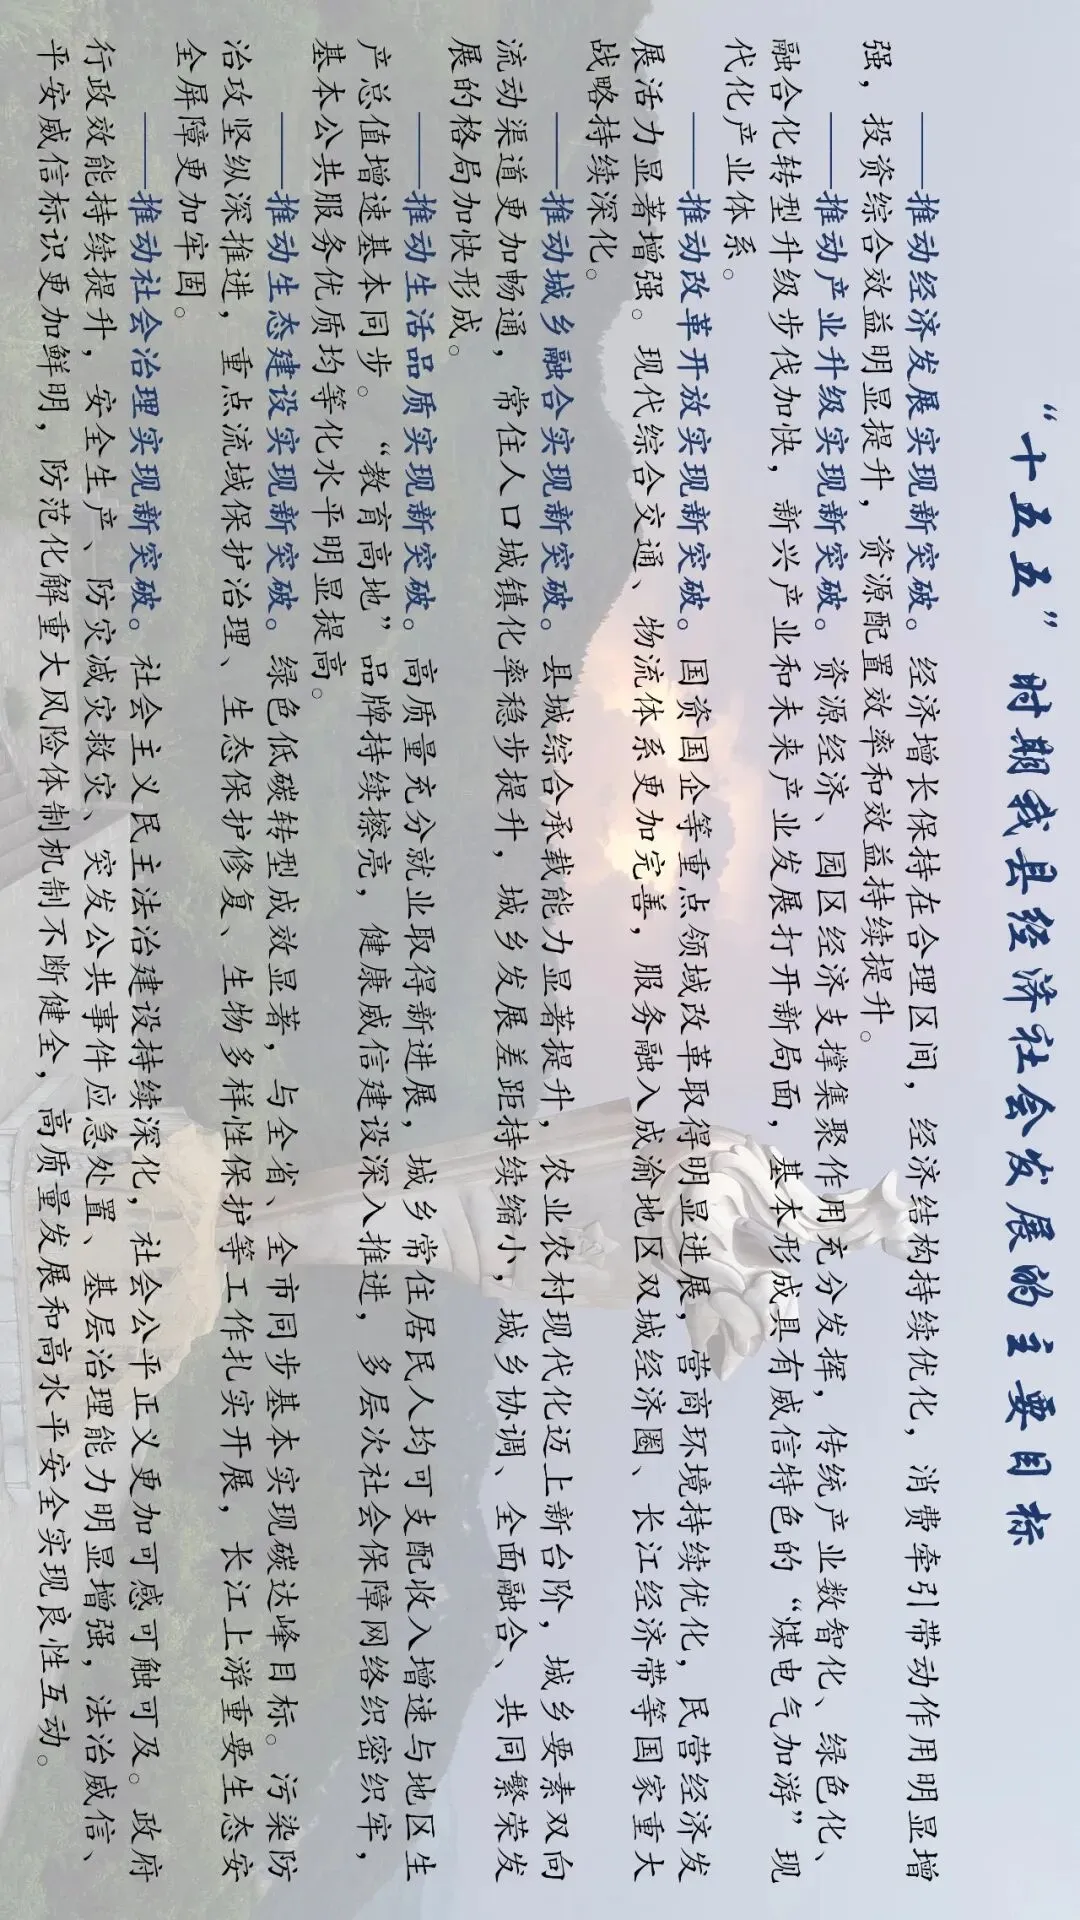 “十五五”时期我县经济社会发展的主要目标
——推动经济发展实现新突破。经济增长保持在合理区间，经济结构持续优化，消费牵引带动作用明显增
强，投资综合效益明显提升，资源配置效率和效益持续提升。
——推动产业升级实现新突破。资源经济、园区经济支撑集聚作用充分发挥，传统产业数智化、绿色化、
融合化转型升级步伐加快，新兴产业和未来产业发展打开新局面，基本形成具有威信特色的“煤电气加游”现
代化产业体系。
——推动改革开放实现新突破。国资国企等重点领域改革取得明显进展，营商环境持续优化，民营经济发
展活力显著增强。现代综合交通、物流体系更加完善，服务融入成渝地区双城经济圈、长江经济带等国家重大
战略持续深化。
——推动城乡融合实现新突破。县城综合承载能力显著提升，农业农村现代化迈上新台阶，城乡要素双向
流动渠道更加畅通，常住人口城镇化率稳步提升，城乡发展差距持续缩小，城乡协调、全面融合、共同繁荣发
展的格局加快形成。
——推动生活品质实现新突破。高质量充分就业取得新进展，城乡常住居民人均可支配收入增速与地区生
产总值增速基本同步。“教育高地”品牌持续擦亮，健康威信建设深入推进，多层次社会保障网络织密织牢，
基本公共服务优质均等化水平明显提高。
——推动生态建设实现新突破。绿色低碳转型成效显著，与全省、全市同步基本实现碳达峰目标。污染防
治攻坚纵深推进，重点流域保护治理、生态保护修复、生物多样性保护等工作扎实开展，长江上游重要生态安
全屏障更加牢固。
——推动社会治理实现新突破。社会主义民主法治建设持续深化，社会公平正义更加可感可触可及。政府
行政效能持续提升，安全生产、防灾减灾救灾、突发公共事件应急处置、基层治理能力明显增强，法治威信、
平安威信标识更加鲜明，防范化解重大风险体制机制不断健全，高质量发展和高水平安全实现良性互动。